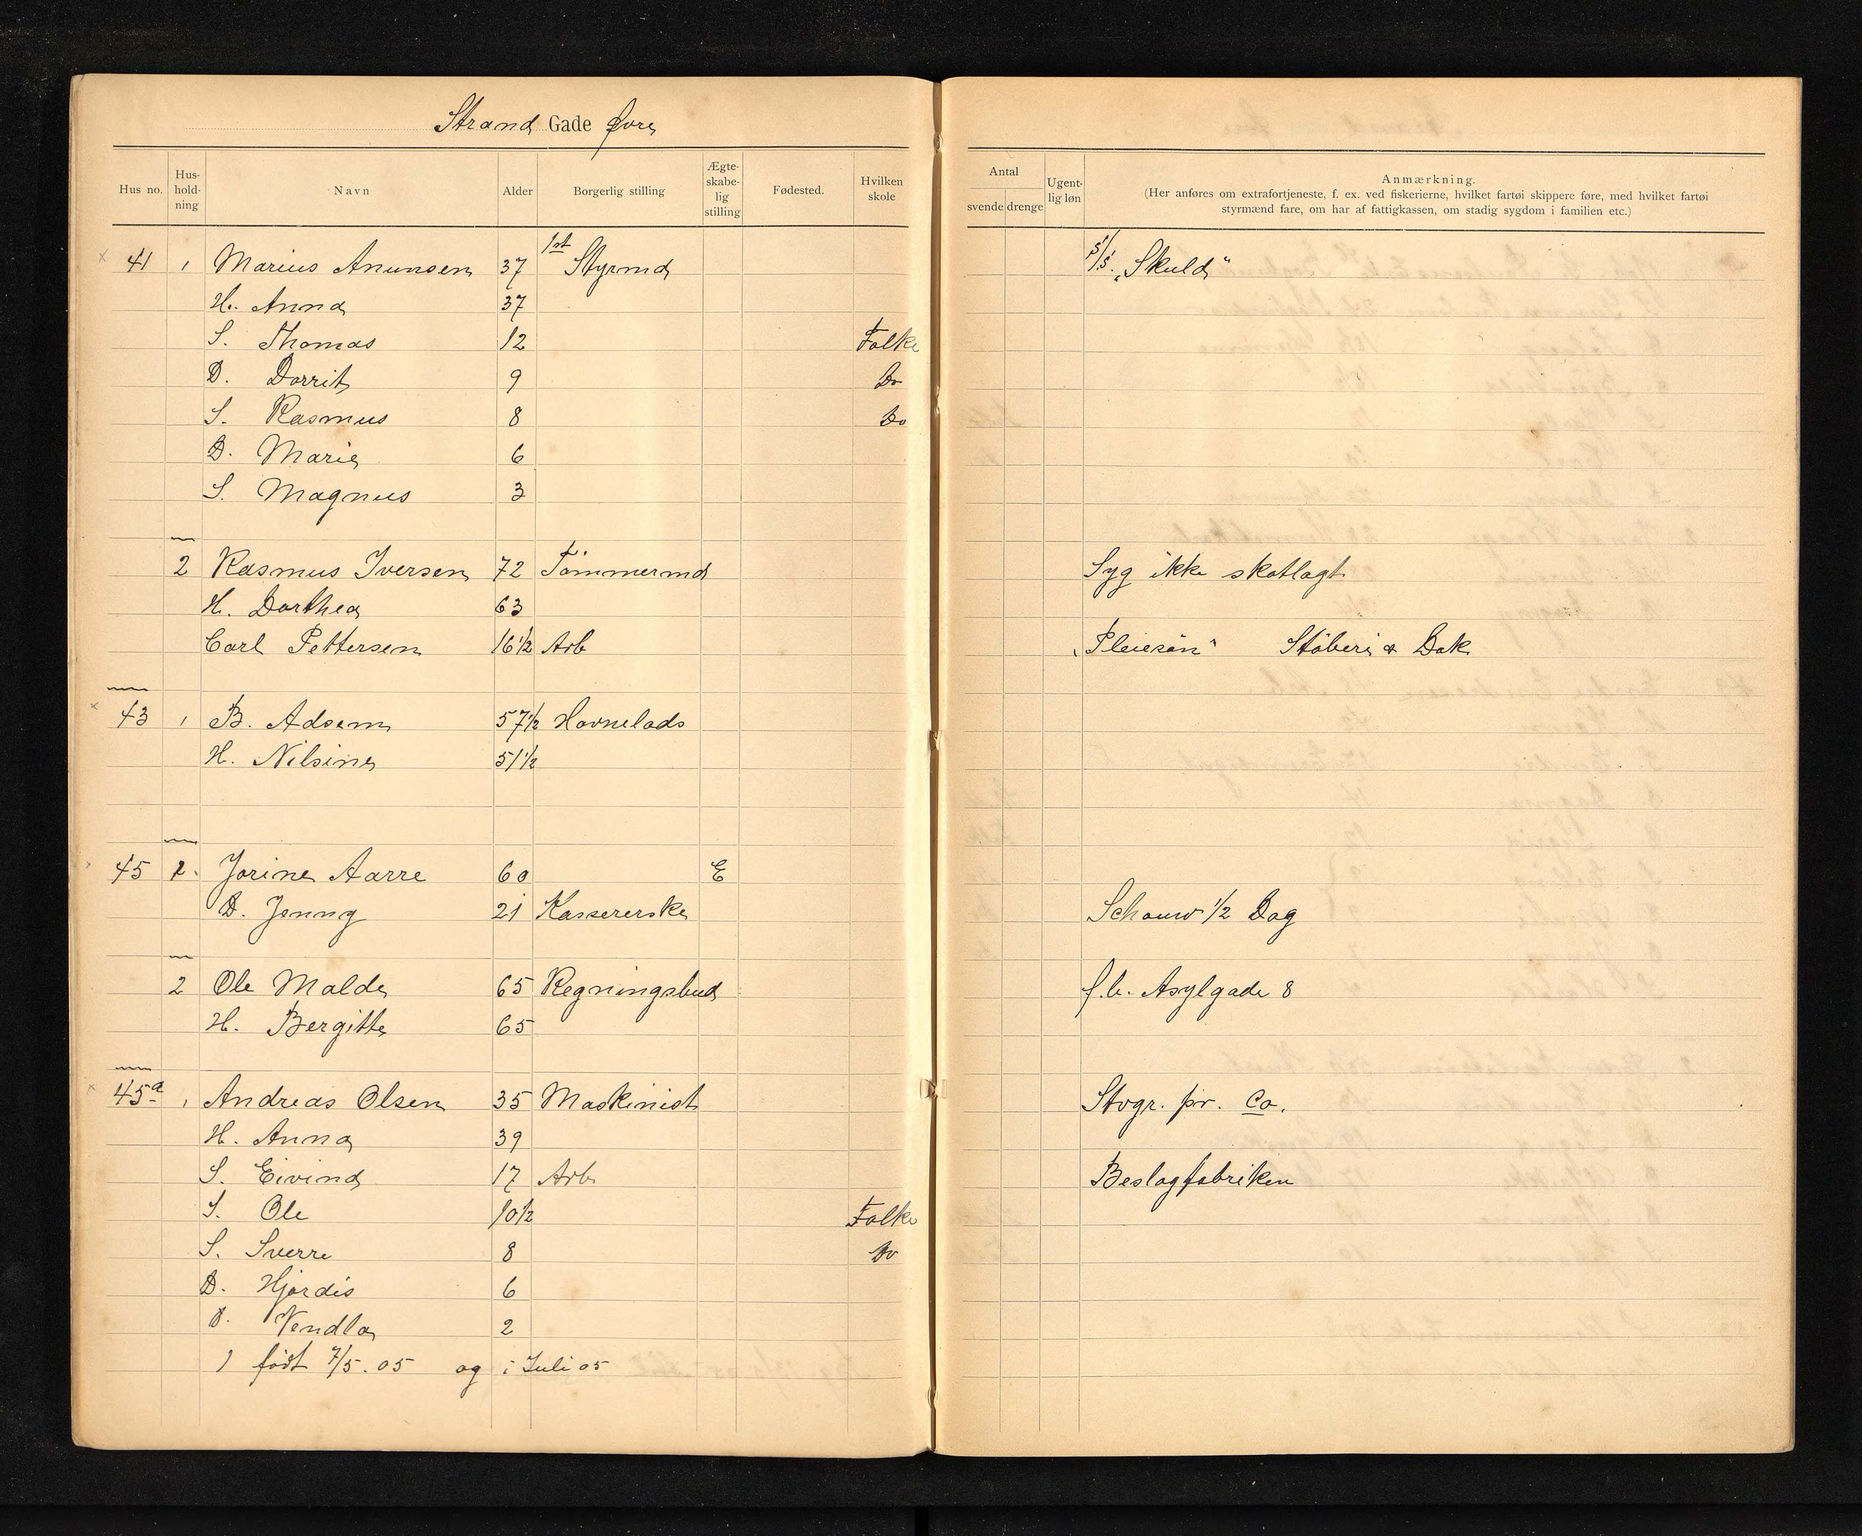 Strand Gade Øvre
Hus no. Hus-hold-ning Navn Alder Borgerlig stilling Ægte-skabe-lig stilling Fødested. Hvilken skole Antal svende drenge Ugent-lig løn Anmærkning.
(Her anføres om extrafortjeneste, f. ex. ved fiskerierne, hvilket fartøi skippere føre, med hvilket fartøi
styrmænd fare, om har af fattigkassen, om stadig sygdom i familien etc.)
41 1 Marius Anunsen 37 1st Styrmd S/S. "Skuld"
H. Anna 37
S. Thomas 12 Folke
D. Dorrit 9 Do
S. Rasmus 8 Do
D. Marie 6
S. Magnus 3
2 Rasmus Iversen 72 Tømmermd Syg ikke skatlagt
H. Dorthea 63
Carl Pettersen 16 1/2 Arb "Pleiesøn" Støberi & Dok
43 1 B. Adsem 57 1/2 Havnelods
H. Nilsine 51 1/2
45 1. Jorine Aarre 60 E
D. Jenny 21 Kassererske Schouw 1/2 Dag
2 Ole Malde 65 Regningsbud f.b. Asylgade 8
H. Bergitte 65
45a 1 Andreas Olsen 35 Maskinist Stvgr. pr. Co.
H. Anna 39
S. Eivind 17 Arb Beslagfabriken
S. Ole 10 1/2 Folke
S. Sverre 8 Do
D. Hjørdis 6
D. Vendla 2
1 født 7/5. 05 og i Juli 05